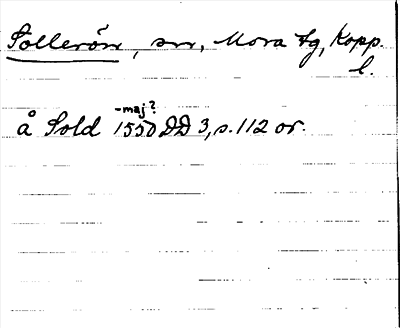 Sollerön, sn, Mora tg, Kopp.
l.
-maj?
å Sold 1550 DD 3, s. 112 or.